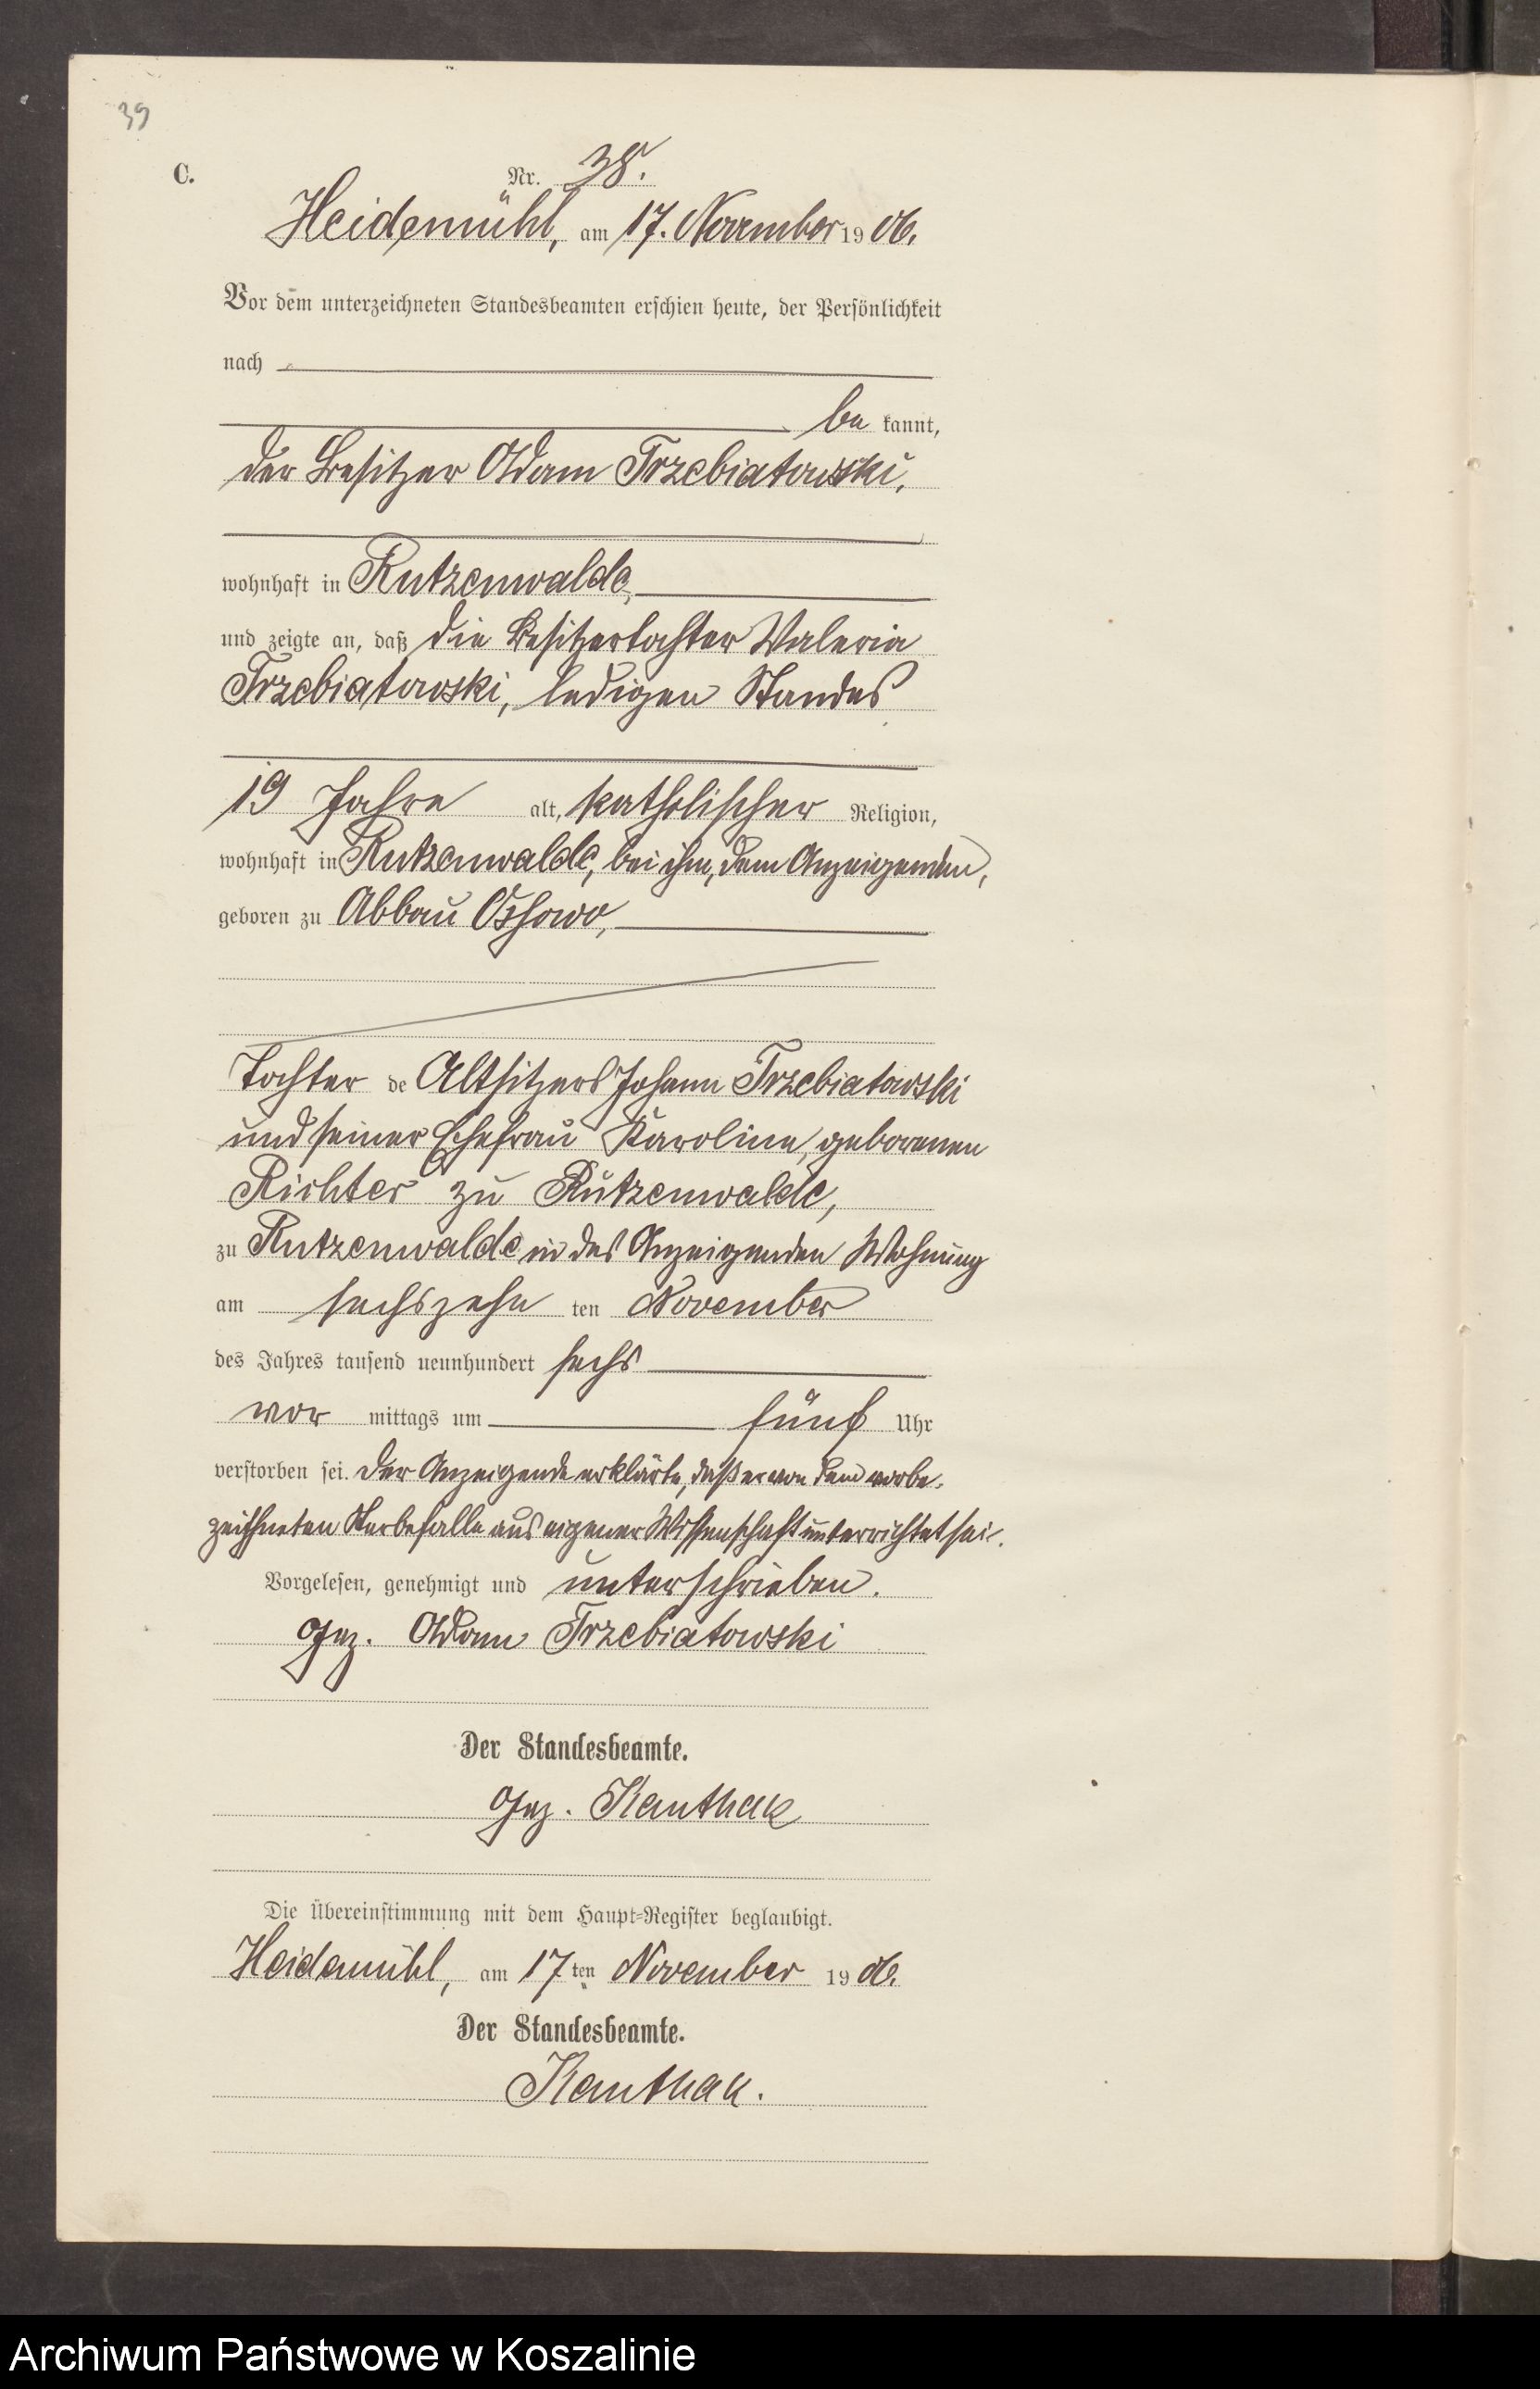 39
C.
Nr. 38.
Heidemühl, am 17. November 19 06.
Vor dem unterzeichneten Standesbeamten erschien heute, der Persönlichkeit
nach
be kannt,
der Besitzer Adam Trzebiatowski,
wohnhaft in Rutzenwalde,
und zeigte an, daß die Besitzertochter Valeria
Trzebiatowski, ledigen Standes
19 Jahre alt, katholischer Religion,
wohnhaft in Rutzenwalde, bei ihm, dem Anzeigenden,
geboren zu Abbau Ossowo,
Tochter de Altsitzers Johann Trzebiatowski
und seiner Ehefrau Karoline, geborenen
Richter zu Rutzenwalde,
zu Rutzenwalde in des Anzeigenden Wohnung
am sechszehn ten November
des Jahres tausend neunhundert sechs
vor mittags um fünf Uhr
verstorben sei. Der Anzeigende erklärte, daß er von dem vorbe-
zeichneten Sterbefalle aus eigener Wissenschaft unterrichtet sei.
Vorgelesen, genehmigt und unterschrieben.
Gez. Adam Trzebiatowski
Der Standesbeamte.
Gez. Kauthak
Die Übereinstimmung mit dem Haupt-Register beglaubigt.
Heidemühl, am 17 ten November 19 06.
Der Standesbeamte.
Kauthak.
Archiwum Państwowe w Koszalinie